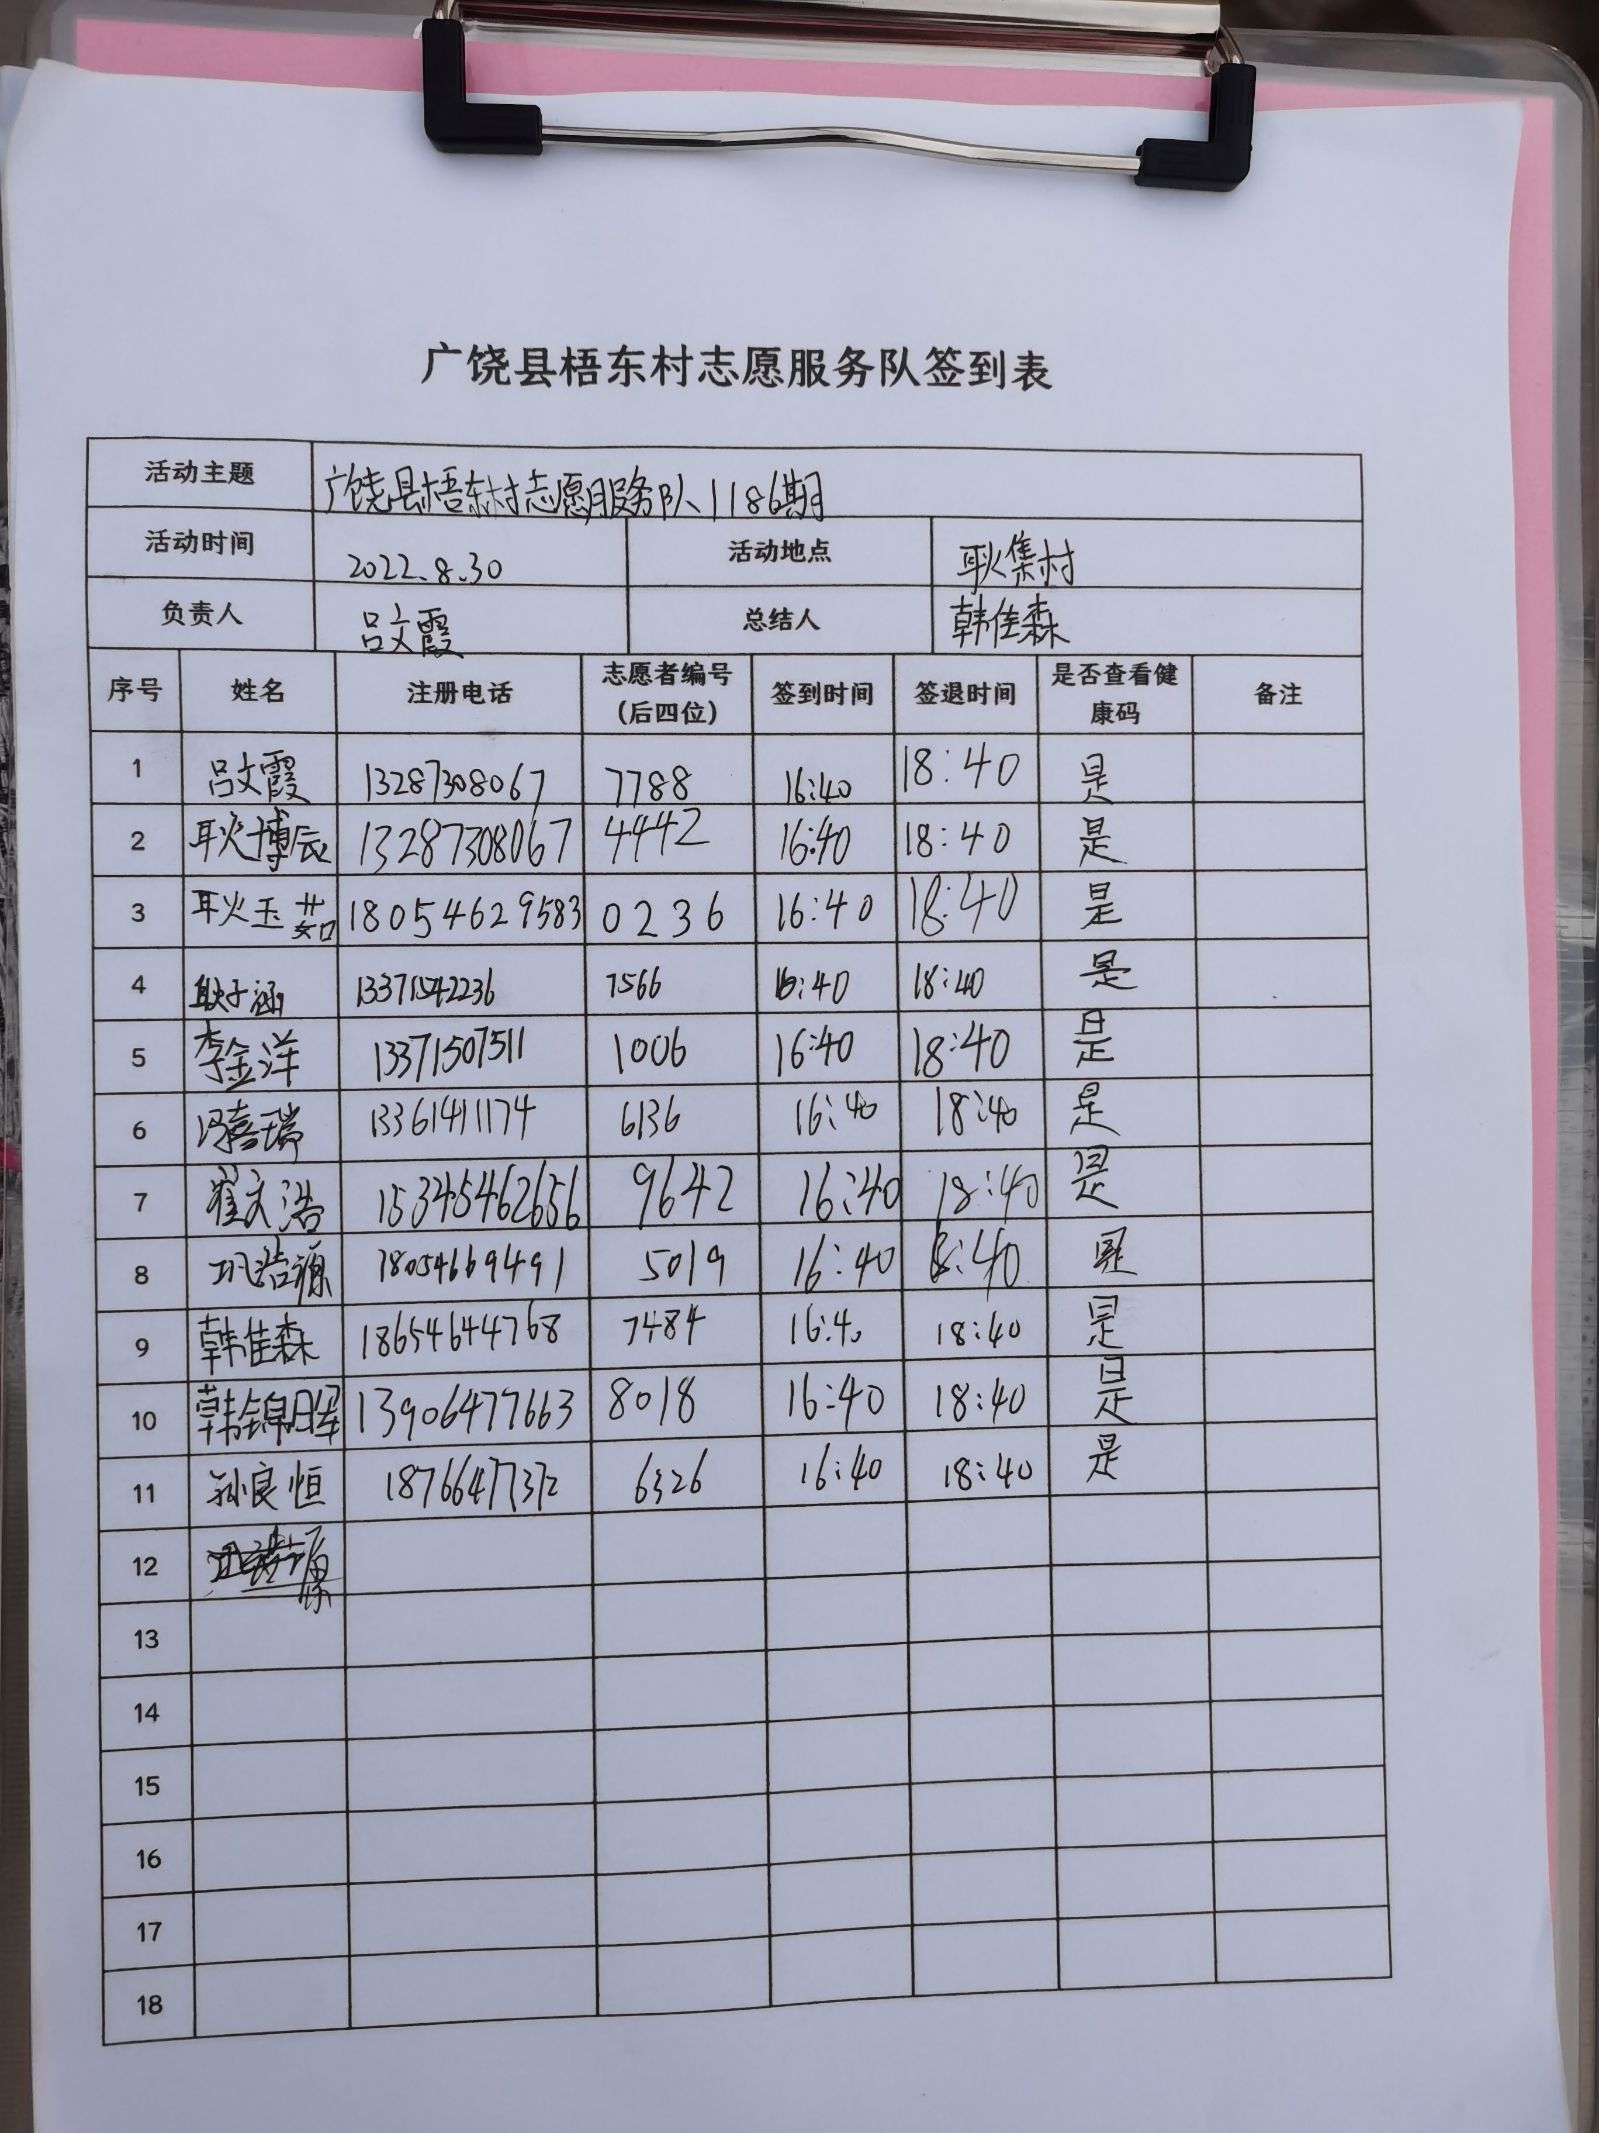 广饶县梧东村志愿服务队签到表
活动主题 广饶县梧东村志愿服务队1186期
活动时间 2022.8.30 活动地点 耿集村
负责人 吕文霞 总结人 韩佳森
序号 姓名 注册电话 志愿者编号(后四位) 签到时间 签退时间 是否查看健康码 备注
1 吕文霞 13287308067 7788 16:40 18:40 是
2 耿博辰 13287308067 4442 16:40 18:40 是
3 耿玉茹 18054629583 0236 16:40 18:40 是
4 耿子涵 13371542236 7566 16:40 18:40 是
5 李金洋 13371507511 1006 16:40 18:40 是
6 冯嘉瑞 13361411174 6136 16:40 18:40 是
7 崔文浩 15345462656 9642 16:40 18:40 是
8 巩浩源 18054669491 5019 16:40 18:40 是
9 韩佳森 18654644768 7484 16:40 18:40 是
10 韩锦晖 13906477663 8018 16:40 18:40 是
11 孙良恒 18766477372 6326 16:40 18:40 是
12
13
14
15
16
17
18